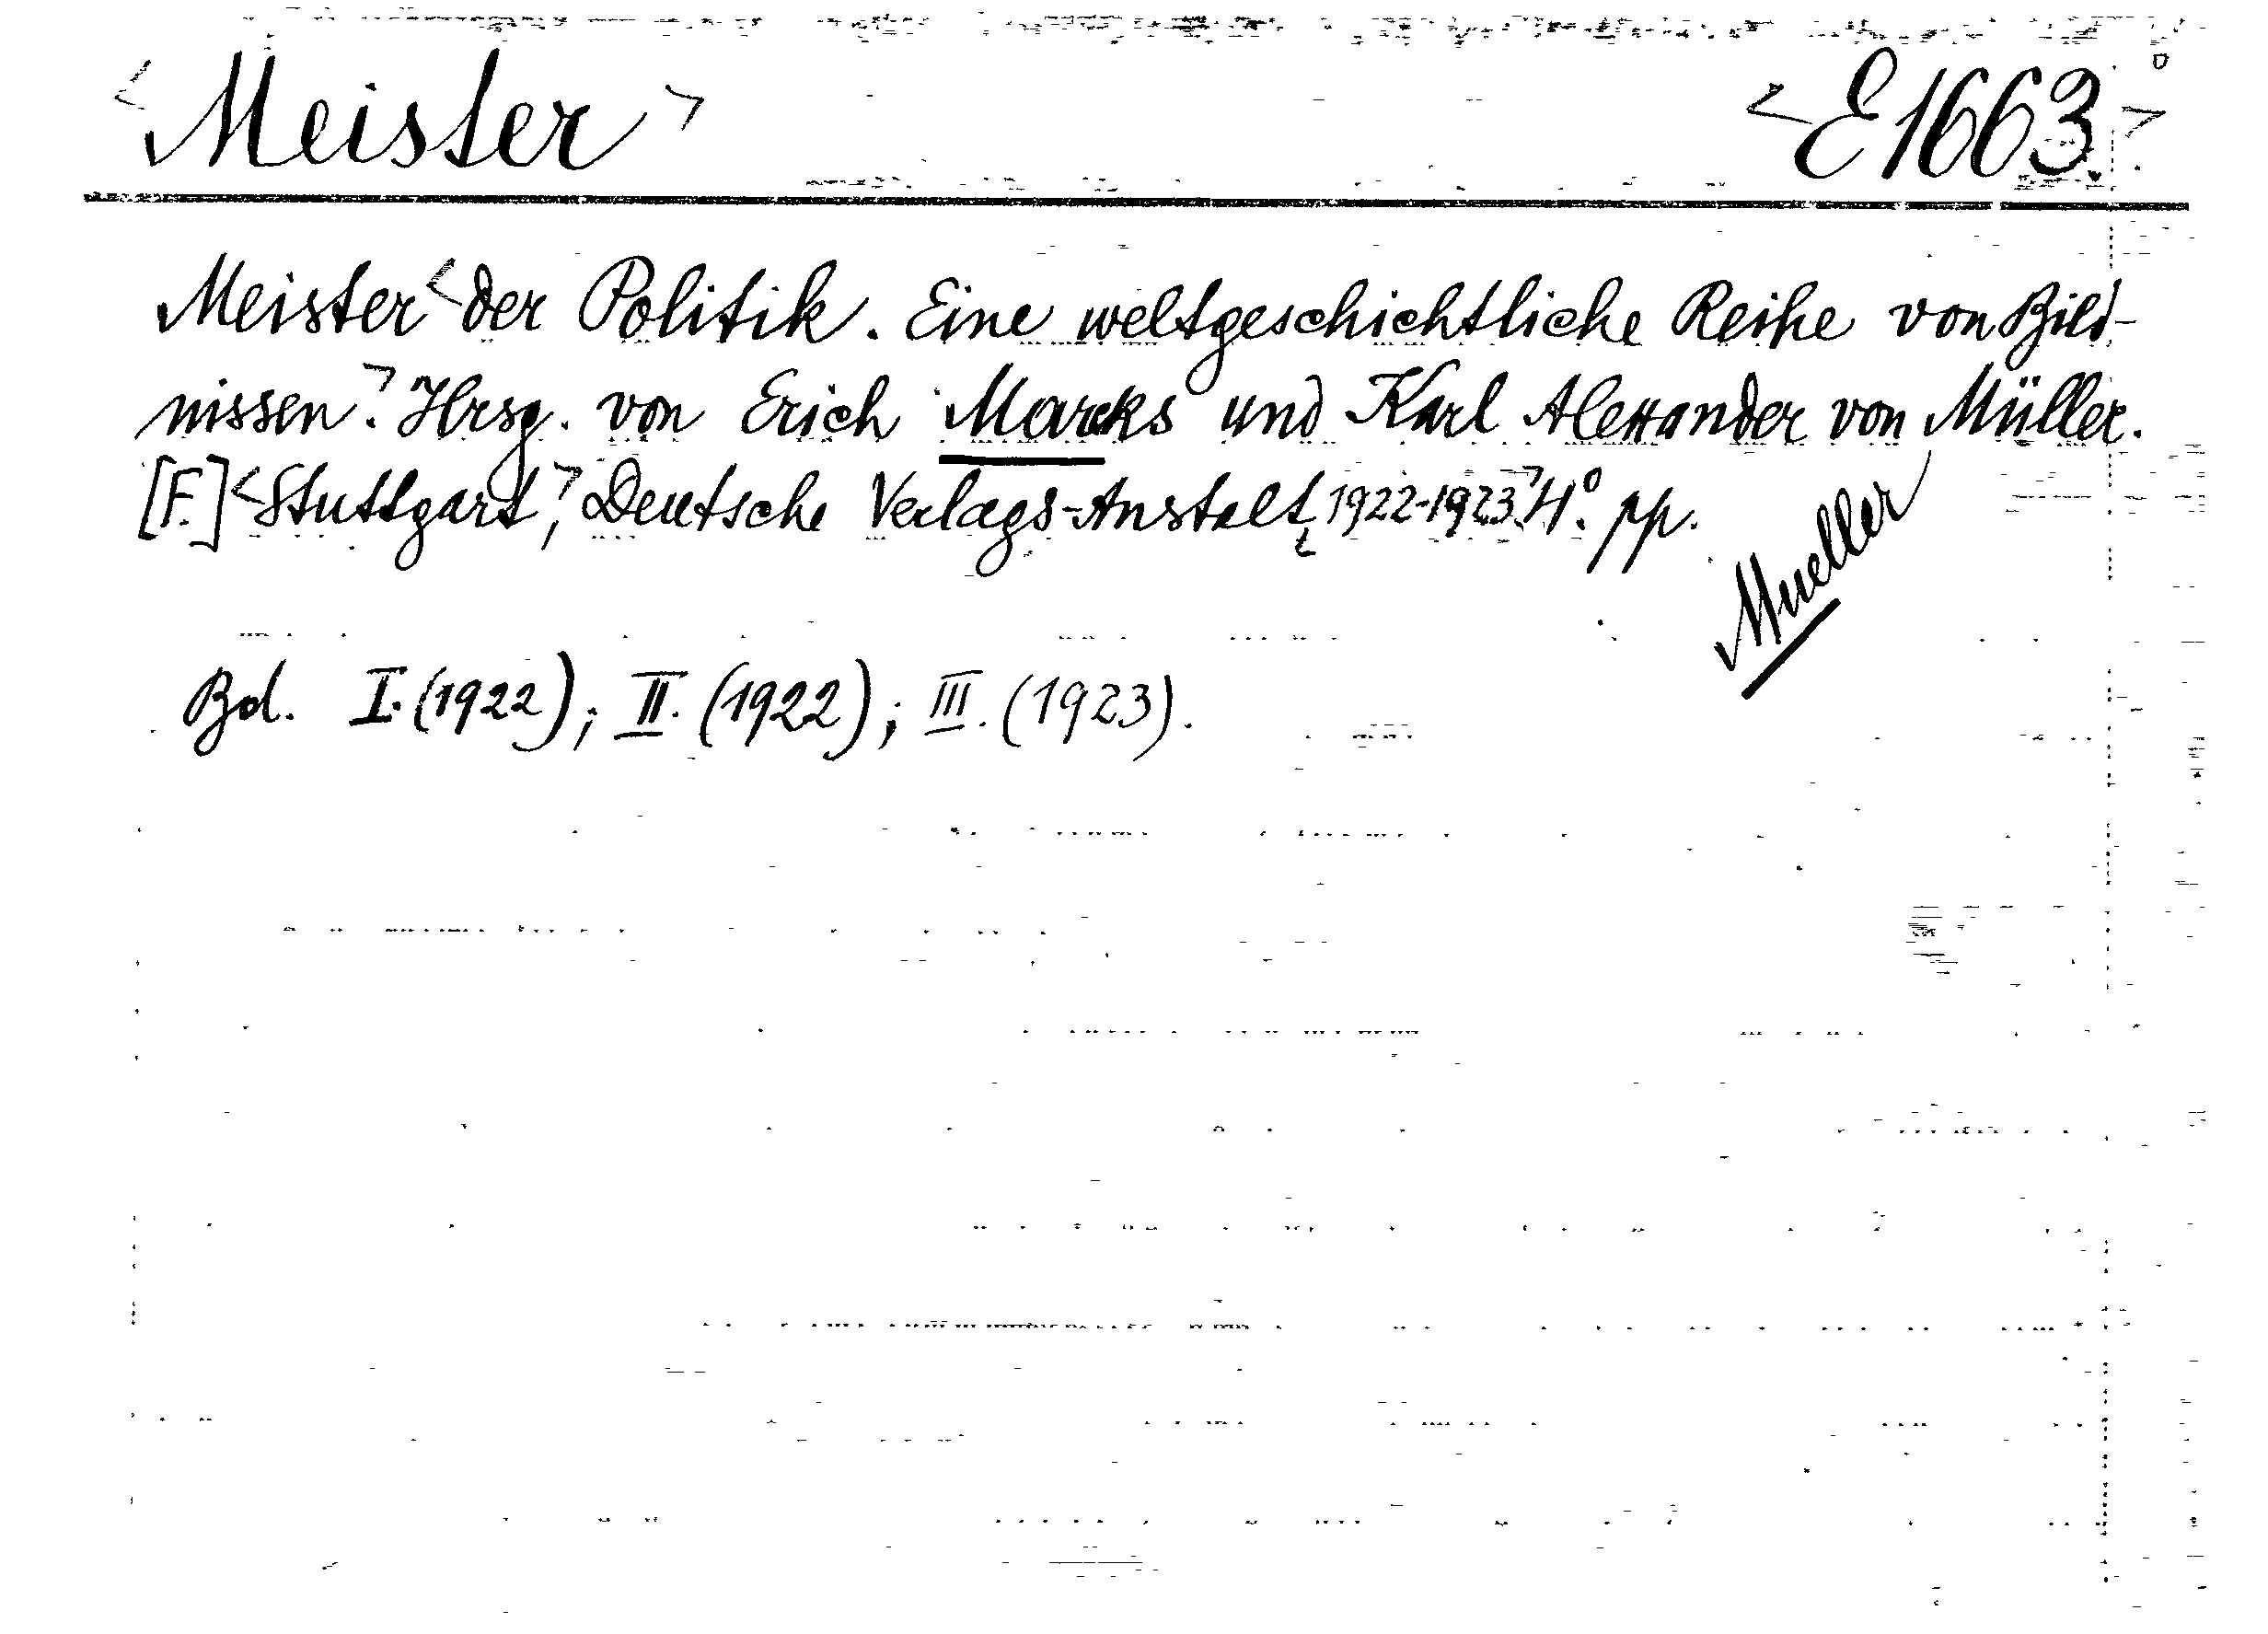 <Meister> <E1663.>
Meister <der Politik. Eine weltgeschichtliche Reihe von Bild-
nissen>. Hrsg. von Erich Marcks und Karl Alexander von Müller.
[F.] <Stuttgart>, Deutsche Verlags-Anstalt, 1922-1923> 4°. pp.
Mueller
Bd. I. (1922); II. (1922); III. (1923).